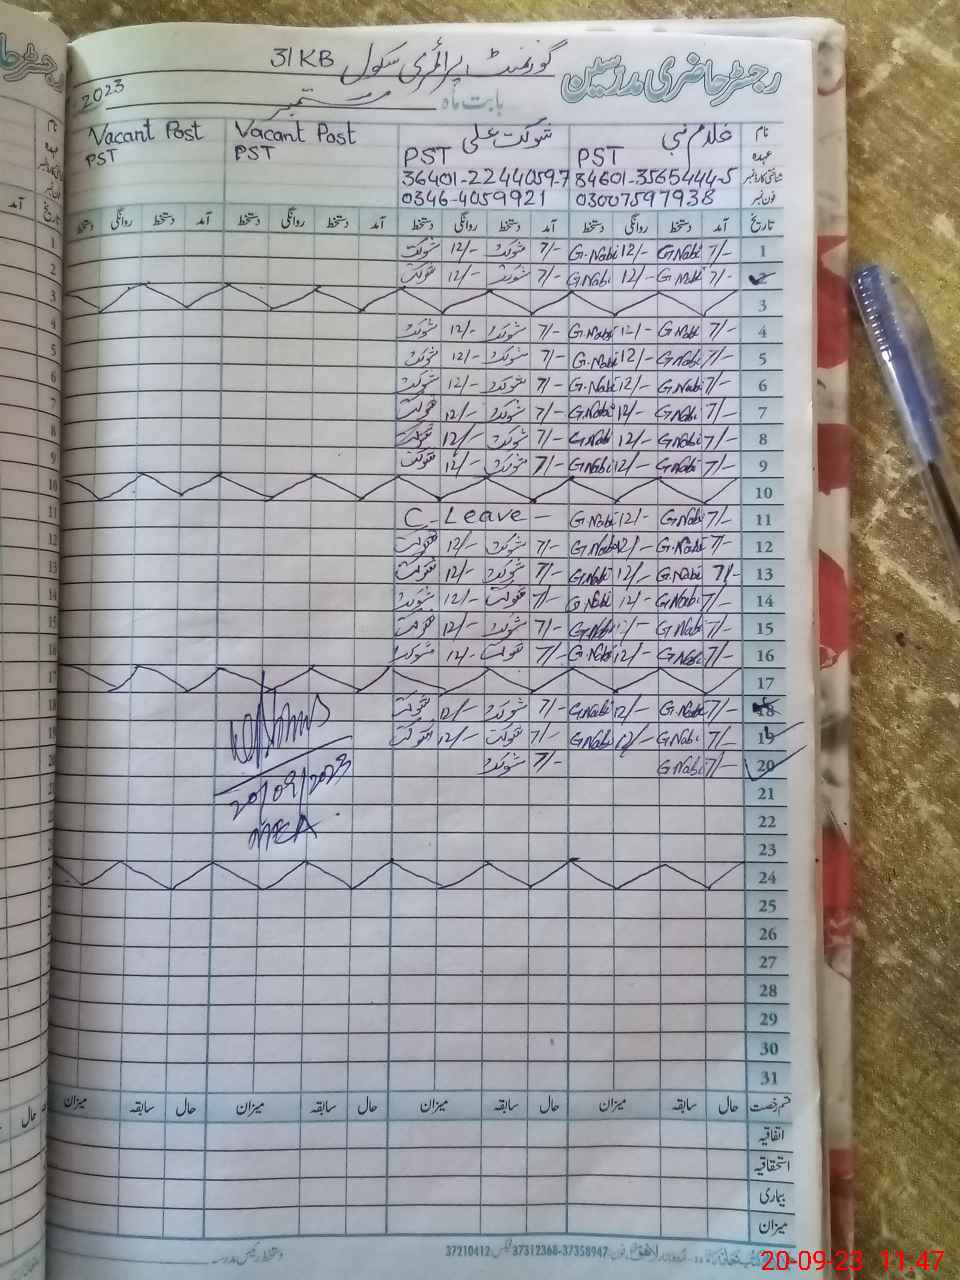 رجسٹر حاضری مدرسین گورنمنٹ پرائمری سکول 31KB
بابت ماہ ستمبر 2023
نام غلام نبی شوکت علی Vacant Post Vacant Post
عہدہ PST PST PST PST
شناختی کارڈ نمبر 34601-3565444-5 36401-2244059-7
فون نمبر 03007597938 0346-4059921
تاریخ آمد دستخط روانگی دستخط آمد دستخط روانگی دستخط آمد دستخط روانگی دستخط آمد دستخط روانگی دستخط
1 7/- G.Nabi 12/- G.Nabi 7/- شوکت 12/- شوکت
2 7/- G.Nabi 12/- G.Nabi 7/- شوکت 12/- شوکت
3
4 7/- G.Nabi 12/- G.Nabi 7/- شوکت 12/- شوکت
5 7/- G.Nabi 12/- G.Nabi 7/- شوکت 12/- شوکت
6 7/- G.Nabi 12/- G.Nabi 7/- شوکت 12/- شوکت
7 7/- G.Nabi 12/- G.Nabi 7/- شوکت 12/- شوکت
8 7/- G.Nabi 12/- G.Nabi 7/- شوکت 12/- شوکت
9 7/- G.Nabi 12/- G.Nabi 7/- شوکت 12/- شوکت
10
11 7/- G.Nabi 12/- G.Nabi C-Leave -
12 7/- G.Nabi 12/- G.Nabi 7/- شوکت 12/- شوکت
13 7/- G.Nabi 12/- G.Nabi 7/- شوکت 12/- شوکت
14 7/- G.Nabi 12/- G.Nabi 7/- شوکت 12/- شوکت
15 7/- G.Nabi 12/- G.Nabi 7/- شوکت 12/- شوکت
16 7/- G.Nabi 12/- G.Nabi 7/- شوکت 12/- شوکت
17
18 7/- G.Nabi 12/- G.Nabi 7/- شوکت 12/- شوکت
19 7/- G.Nabi 12/- G.Nabi 7/- شوکت 12/- شوکت
20 7/- G.Nabi 7/- شوکت
20/09/2023
MEA
21
22
23
24
25
26
27
28
29
30
31
قسم رخصت حال سابقہ میزان حال سابقہ میزان حال سابقہ میزان حال سابقہ میزان
اتفاقیہ
استحقاقیہ
بیماری
میزان
37312368-37358947 فیکس 37210412
دستخط رئیس مدرسہ
20-09-23 11:47